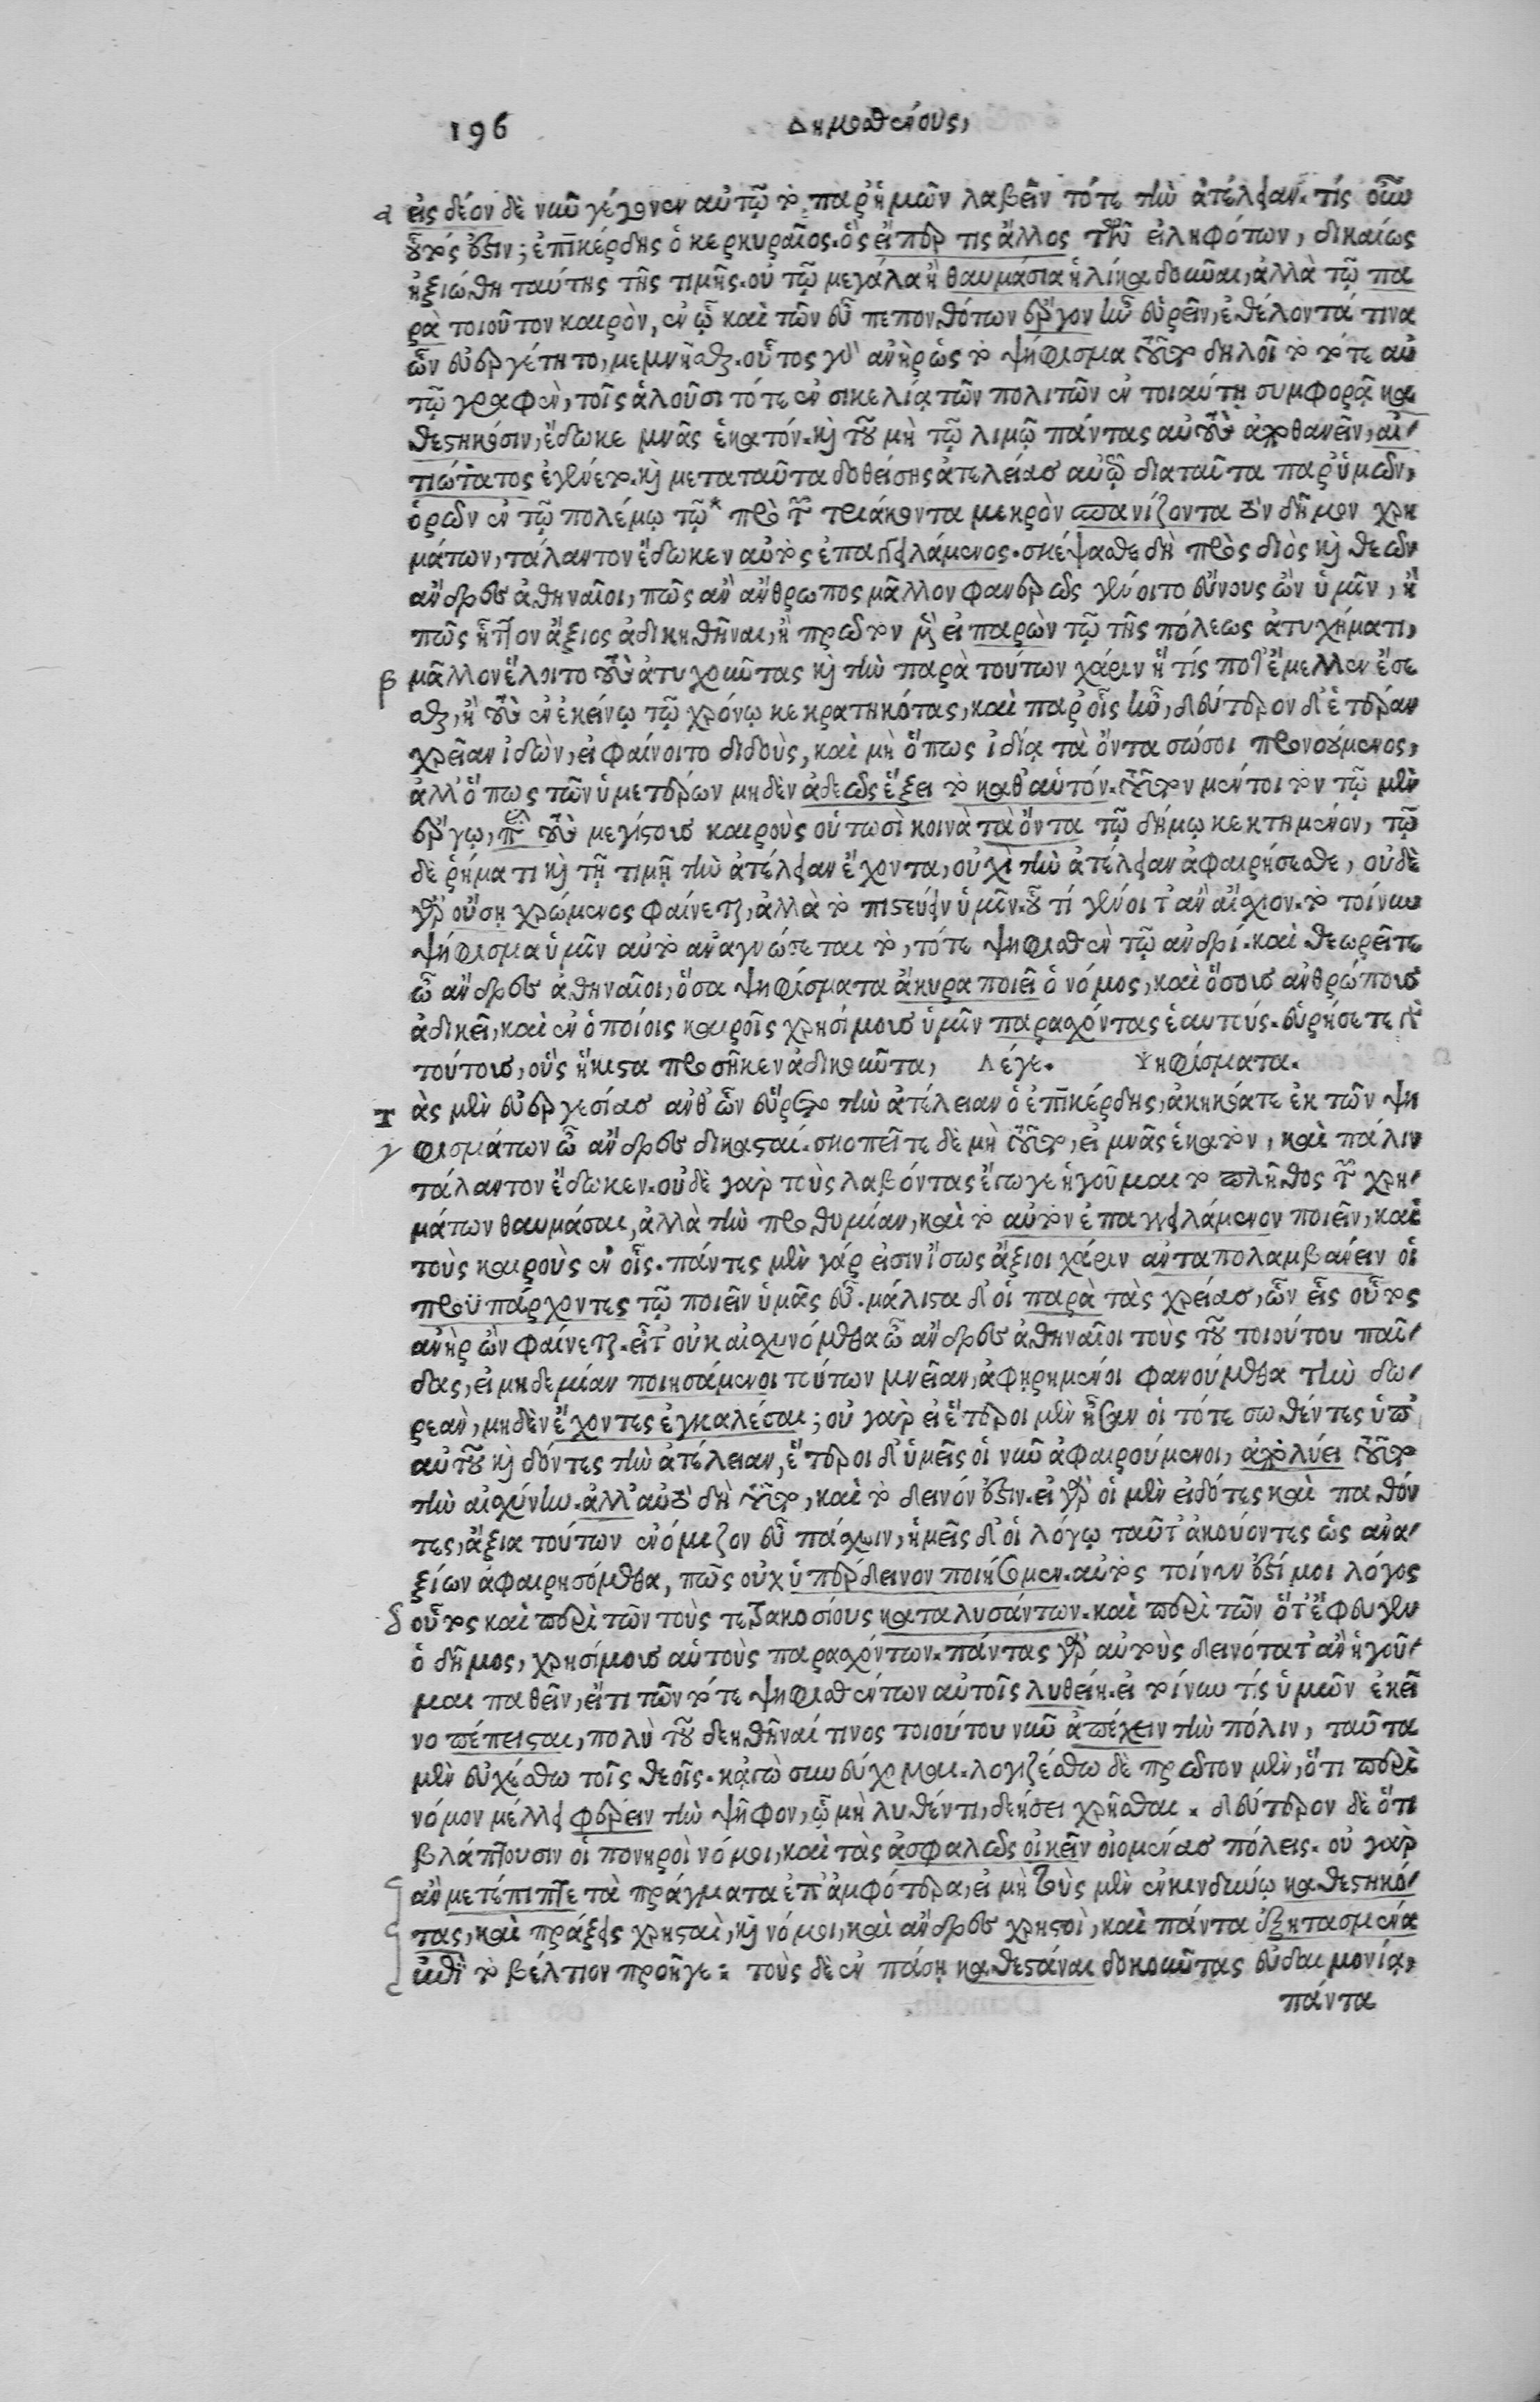 196 Δημοσθένους,
α εἰς δέον δὲ νῦν γέγονεν αὐτῷ τὸ παρ' ἡμῶν λαβεῖν τότε τὴν ἀτέλειαν. τίς οὖν
οὗτός ἐστιν; ἐπικέρδης ὁ κερκυραῖος. ὃς εἴπερ τις ἄλλος τῶν εἰληφότων, δικαίως
ἠξιώθη ταύτης τῆς τιμῆς. οὐ τῷ μεγάλα ἢ θαυμάσια ἡλίκα δοκοῦναι, ἀλλὰ τῷ πα
ρὰ τοιοῦτον καιρὸν, ἐν ᾧ καὶ τῶν εὖ πεπονθότων ἔργον ἦν εὑρεῖν, ἐθέλοντά τινα
ὧν εὐεργέτητο, μεμνῆσθαι. οὗτος γὰρ ἀνὴρ ὡς τὸ ψήφισμα τοῦτο δηλοῖ τὸ τότε αὐ
τῷ γραφὲν, τοῖς ἁλοῦσι τότε ἐν σικελίᾳ τῶν πολιτῶν ἐν τοιαύτῃ συμφορᾷ κα
θεστηκόσιν, ἔδωκε μνᾶς ἑκατόν. καὶ τοῦ μὴ τῷ λιμῷ πάντας αὐτοὺς ἀποθανεῖν, αἰ-
τιώτατος ἐγένετο. καὶ μεταταῦτα δοθείσης ἀτελείας αὐτῷ διαταῦτα παρ' ὑμῶν,
ὁρῶν ἐν τῷ πολέμῳ τῷ* πρὸ τῶν τριάκοντα μικρὸν σπανίζοντα τὸν δῆμον χρη
μάτων, τάλαντον ἔδωκεν αὐτὸς ἐπαγγειλάμενος. σκέψασθε δὴ πρὸς διὸς καὶ θεῶν
ἄνδρες ἀθηναῖοι, πῶς ἂν ἄνθρωπος μᾶλλον φανερῶς γένοιτο εὔνους ὢν ὑμῖν, ἢ
πῶς ἧττον ἄξιος ἀδικηθῆναι, ἢ πρῶτον μὲν εἰ παρὼν τῷ τῆς πόλεως ἀτυχήματι,
β μᾶλλον ἕλοιτο τοὺς ἀτυχοῦντας καὶ τὴν παρὰ τούτων χάριν ἥ τίς ποτ' ἔμελλεν ἔσε
σθαι, ἢ τοὺς ἐν ἐκείνῳ τῷ χρόνῳ κεκρατηκότας, καὶ παρ' οἷς ἦν, δεύτερον δ' ἑτέραν
χρείαν ἰδὼν, εἰ φαίνοιτο διδοὺς, καὶ μὴ ὅπως ἰδίᾳ τὰ ὄντα σώσοι προνούμενος,
ἀλλ' ὅπως τῶν ὑμετέρων μηδὲν ἀδεῶς ἕξει τὸ καθ' αὑτόν. τοῦτον μέντοι τὸν τῷ μὲν
ἔργῳ, παρὰ τοὺς μεγίστους καιροὺς οὑτωσὶ κοινὰ τὰ ὄντα τῷ δήμῳ κεκτημένον, τῷ
δὲ ῥήματι καὶ τῇ τιμῇ τὴν ἀτέλειαν ἔχοντα, οὐχὶ τὴν ἀτέλειαν ἀφαιρήσεσθε, οὐδὲ
γὰρ οὔσῃ χρώμενος φαίνεται, ἀλλὰ τὸ πιστεύειν ὑμῖν. οὗ τί γένοιτ' ἂν αἴσχιον. τὸ τοίνυν
ψήφισμα ὑμῖν αὐτὸ ἀναγνώσεται τὸ, τότε ψηφισθὲν τῷ ἀνδρί. καὶ θεωρεῖτε
ὦ ἄνδρες ἀθηναῖοι, ὅσα ψηφίσματα ἄκυρα ποιεῖ ὁ νόμος, καὶ ὅσους ἀνθρώπους
ἀδικεῖ, καὶ ἐν ὁποίοις καιροῖς χρησίμους ὑμῖν παρασχόντας ἑαυτούς. εὑρήσετε γὰρ
τούτους, οὓς ἥκιστα προσῆκεν ἀδικοῦντα, Λέγε. Ψηφίσματα.
Τ ὰς μὲν εὐεργεσίας ἀνθ' ὧν εὕρετο τὴν ἀτέλειαν ὁ ἐπικέρδης, ἀκηκόατε ἐκ τῶν ψη
γ φισμάτων ὦ ἄνδρες δικασταί. σκοπεῖτε δὲ μὴ τοῦτο, εἰ μνᾶς ἑκατὸν, καὶ πάλιν
τάλαντον ἔδωκεν. οὐδὲ γὰρ τοὺς λαβόντας ἔγωγε ἡγοῦμαι τὸ πλῆθος τῶν χρη-
μάτων θαυμάσαι, ἀλλὰ τὴν προθυμίαν, καὶ τὸ αὐτὸν ἐπαγγειλάμενον ποιεῖν, καὶ
τοὺς καιροὺς ἐν οἷς. πάντες μὲν γάρ εἰσιν ἴσως ἄξιοι χάριν ἀνταπολαμβάνειν οἱ
προϋπάρχοντες τῷ ποιεῖν ὑμᾶς εὖ. μάλιστα δ' οἱ παρὰ τὰς χρείας, ὧν εἷς οὗτος
ἀνὴρ ὢν φαίνεται. εἶτ' οὐκ αἰσχυνόμεθα ὦ ἄνδρες ἀθηναῖοι τοὺς τοῦ τοιούτου παῖ-
δας, εἰ μηδεμίαν ποιησάμενοι τούτων μνείαν, ἀφῃρημένοι φανούμεθα τὴν δω-
ρεὰν, μηδὲν ἔχοντες ἐγκαλέσαι; οὐ γὰρ εἰ ἕτεροι μὲν ἦσαν οἱ τότε σωθέντες ὑπ'
αὐτοῦ καὶ δόντες τὴν ἀτέλειαν, ἕτεροι δ' ὑμεῖς οἱ νῦν ἀφαιρούμενοι, ἀπολύει τοῦτο
τὴν αἰσχύνην. ἀλλ' αὐτὸ δὴ τοῦτο, καὶ τὸ δεινόν ἐστιν. εἰ γὰρ οἱ μὲν εἰδότες καὶ παθόν
τες, ἄξια τούτων ἐνόμιζον εὖ πάσχειν, ἡμεῖς δ' οἱ λόγῳ ταῦτ' ἀκούοντες ὡς ἀνα-
ξίων ἀφαιρησόμεθα, πῶς οὐχ ὑπέρδεινον ποιήσομεν. αὐτὸς τοίνυν ἐστί μοι λόγος
δ οὗτος καὶ περὶ τῶν τοὺς τετρακοσίους καταλυσάντων. καὶ περὶ τῶν ὅτ' ἔφευγεν
ὁ δῆμος, χρησίμους αὑτοὺς παρασχόντων. πάντας γὰρ αὐτοὺς δεινότατ' ἂν ἡγοῦ-
μαι παθεῖν, εἴ τι τῶν τότε ψηφισθέντων αὐτοῖς λυθείη. εἰ τοίνυν τίς ὑμῶν ἐκεῖ
νο πέπεισται, πολὺ τοῦ δεηθῆναί τινος τοιούτου νῦν ἀπέχειν τὴν πόλιν, ταῦτα
μὲν εὐχέσθω τοῖς θεοῖς. κἀγὼ συνεύχομαι. λογιζέσθω δὲ πρῶτον μὲν, ὅτι περὶ
νόμον μέλλει φέρειν τὴν ψῆφον, ᾧ μὴ λυθέντι, δεήσει χρῆσθαι. δεύτερον δὲ ὅτι
βλάπτουσιν οἱ πονηροὶ νόμοι, καὶ τὰς ἀσφαλῶς οἰκεῖν οἰομένας πόλεις. οὐ γὰρ
ἂν μετέπιπτε τὰ πράγματα ἐπ' ἀμφότερα, εἰ μὴ τοὺς μὲν ἐν κινδύνῳ καθεστηκό-
τας, καὶ πράξεις χρησταὶ, καὶ νόμοι, καὶ ἄνδρες χρηστοὶ, καὶ πάντα ἐξητασμένα
ἐπὶ τὸ βέλτιον προῆγε: τοὺς δὲ ἐν πάσῃ καθεστάναι δοκοῦντας εὐδαιμονίᾳ,
πάντα